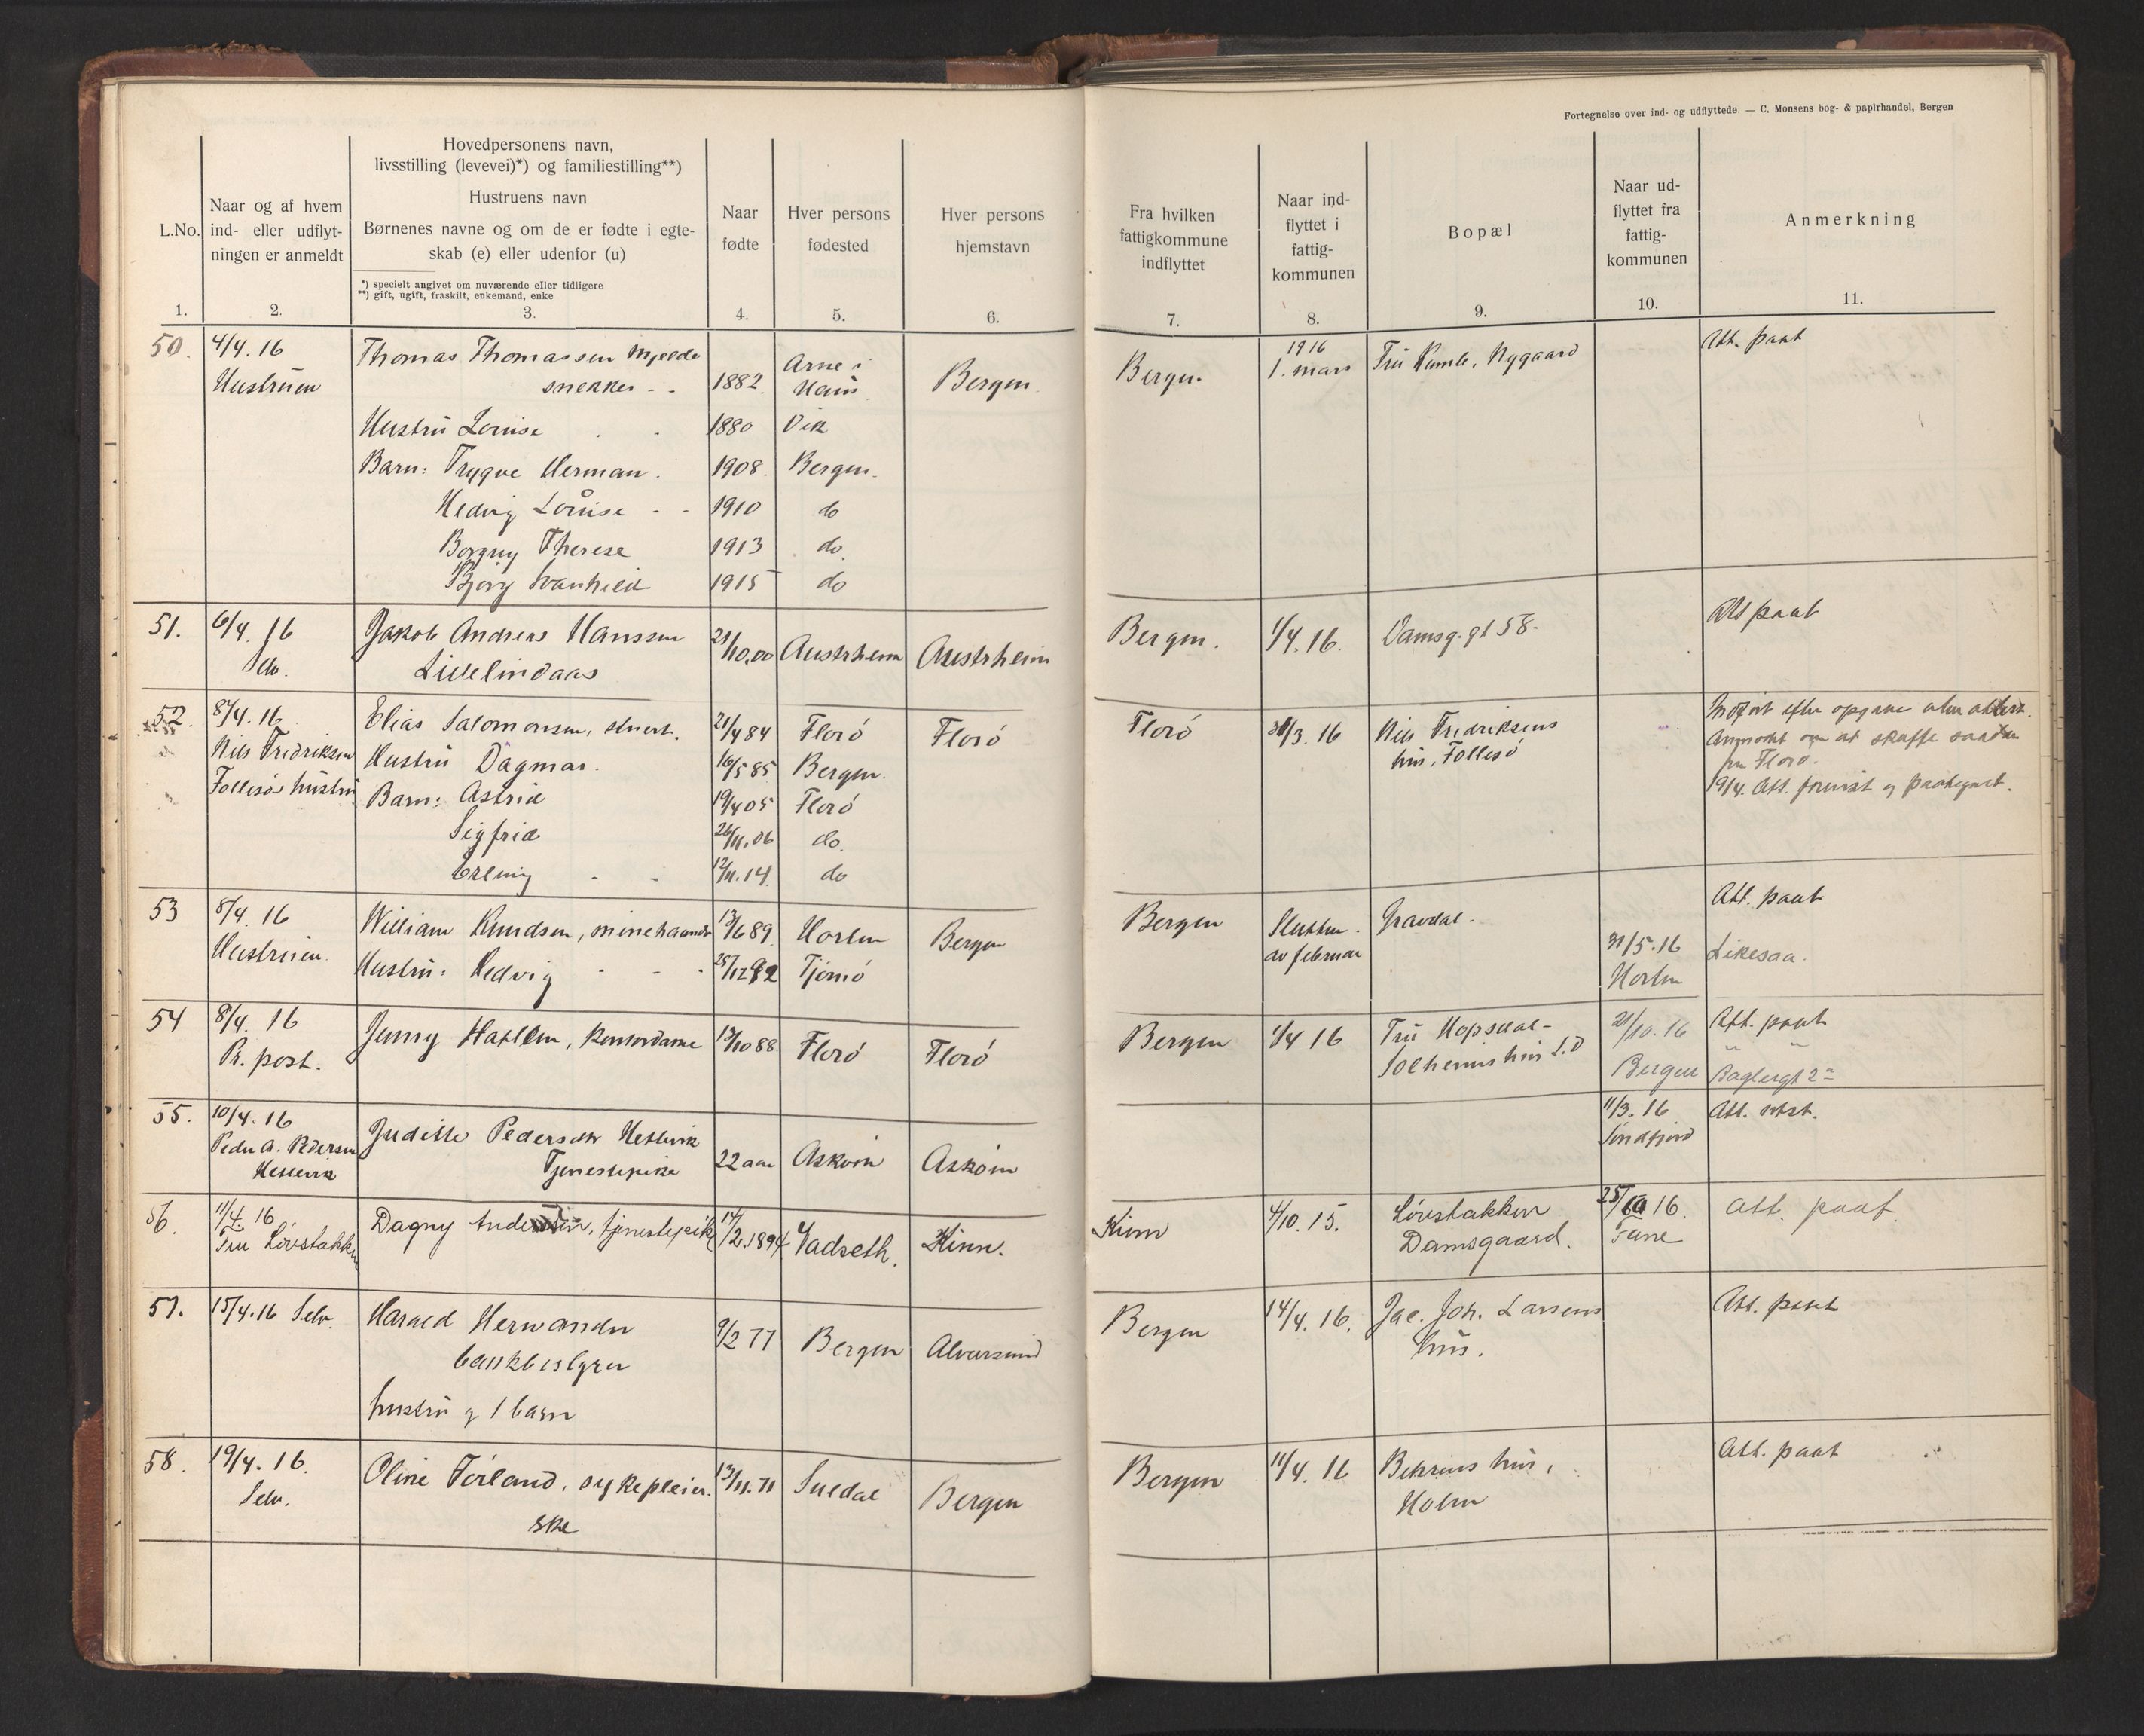 Fortegnelse over ind- og udflyttede. — C. Monsens bog- & papirhandel, Bergen
L.No.
1.
Naar og af hvem
ind- eller udflyt-
ningen er anmeldt
2.
Hovedpersonens navn,
livsstilling (levevei)*) og familiestilling**)
Hustruens navn
Børnenes navne og om de er fødte i egte-
skab (e) eller udenfor (u)
*) specielt angivet om nuværende eller tidligere
**) gift, ugift, fraskilt, enkemand, enke
3.
Naar
fødte
4.
Hver persons
fødested
5.
Hver persons
hjemstavn
6.
Fra hvilken
fattigkommune
indflyttet
7.
Naar ind-
flyttet i
fattig-
kommunen
8.
Bopæl
9.
Naar ud-
flyttet fra
fattig-
kommunen
10.
Anmerkning
11.
50.
4/4. 16
Hustruen
Thomas Thomassen Mjelde
snekker
1882
Arne i
Haus
Bergen
Bergen
1916
1. mars
Fru Nygaard
Att. paat
Hustru Louise
1880
Vik
Barn: Trygve Herman.
1908
Bergen.
Hedvig Louise
1910
do
Borgny Therese
1913
do
Bjørg Svanhild
1915
do
51.
6/4. 16
Selv.
Jakob Andreas Hanssen
Lillelindaas
21/10.00
Austrheim
Austrheim
Bergen.
1/4. 16.
Damsg. gt 58.
Att paat
52.
8/4. 16
Nils Fredriksen
Follesøs hustru
Elias Salomonsen, stuert.
21/4 84
Florø
Florø
Florø
31/3. 16
Nils Fredriksens
hus, Follesø
Indført efter opgave uten attest.
Anmodet om at skaffe saadan
fra Florø.
19/4. Att. forevist og paategnet.
Hustru Dagmar.
16/5 85
Bergen.
Barn: Astrid
19/4 05
Florø
Sigfrid
26/11.06
do.
Erling
12/11.14
do
53
8/4. 16
Hustruen.
William Knudsen, minehaandv
13/6 89
Horten
Bergen
Bergen
Slutten
av februar
Gravdal.
31/5. 16
Horten
Att. paat
Likesaa.
Hustru: Hedvig
25/12 92
Tjømø
54
8/4. 16
Pr. post.
Jenny Hatlem, kontordame
13/10 88
Florø
Florø
Bergen
1/4 16
Fru Hopsdal-
Solheims hus L.D
21/10. 16
Bergen
Att. paat
" "
Baglergt 2
55.
10/4. 16
Peder A. Pedersen
Hetlevik
Judithe Pedersdtr Hetlevik
Tjenestepike
22 aar
Askøin
Askøin
11/3. 16
Søndfjord
Att. utst.
56.
11/4 16
Fru Løvstakken
Dagny Andersen, tjenestepike
14/2.1894
Vadseth.
Kinn.
Kinn
4/10. 15.
Løvstakken
Damsgaard.
25/10 16.
Fane
att. paat.
57.
15/4. 16 Selv.
Harald Herwander
bankbestyrer
hustru og 1 barn
9/2 77
Bergen
Alversund
Bergen
14/4. 16.
Jac. Joh. Larsens
hus.
Att. paat
58.
19/4. 16.
Selv.
Oline Førland, sykepleier-
ske
13/11.71
Suldal
Bergen
Bergen
14/4. 16
Behrens hus,
Holen
Att. paat